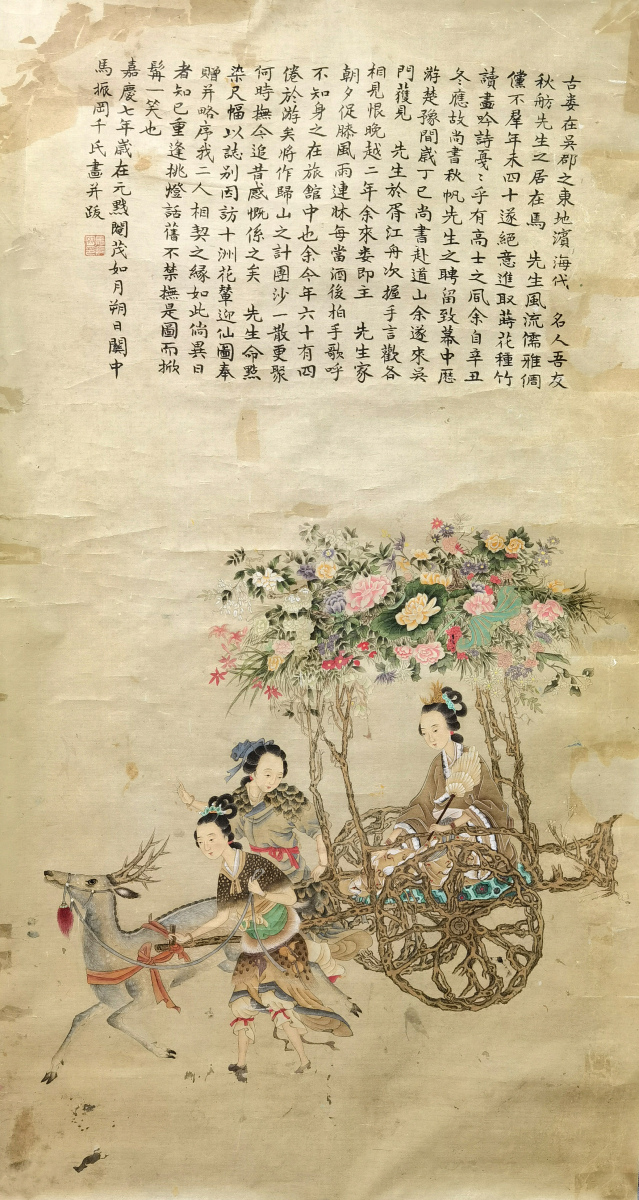 古婁在吳郡之東地濱海代 名人吾友
秋舫先生之居在馬 先生風流儒雅倜
儻不羣年未四十遂絕意進取蒔花種竹
讀畫吟詩〻乎有高士之風余自辛丑
冬應故尚書秋帆先生之聘留致幕中歷
游楚豫間歲丁巳尚書赴道山余遂來吳
門獲見 先生於胥江舟次握手言歡各
相見恨晚越二年余來婁即主 先生家
朝夕促膝風雨連牀每當酒後拍手歌呼
不知身之在旅館中也余今年六十有四
倦於游矣將作歸山之計團沙一散更聚
何時撫今追昔感慨係之矣 先生命點
染尺幅以誌別因訪十洲花輦迎仙圖奉
贈并略序我二人相契之緣如此倘異日
者知己重逢挑燈話舊不禁撫是圖而掀
髯一笑也
嘉慶七年歲在元黓閹茂如月朔日關中
馬振岡千氏畫并跋